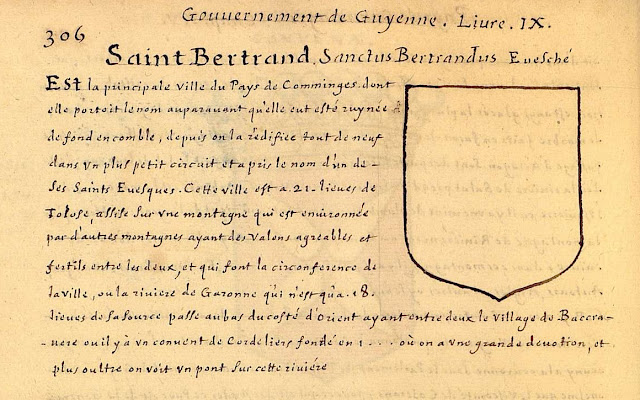 Gouuernement de Guyenne. Liure. IX.
306
Saint Bertrand, Sanctus Bertrandus Euesché
Est la principale ville du Pays de Comminges dont
elle portoit le nom auparauant qu'elle eut esté ruynée &
de fond en comble, depuis on la rédifiée tout de neuf
dans vn plus petit circuit et a pris le nom d'un de-
ses Saints Euesques. Cette ville est a. 21. lieues de
Tolose, assise sur vne montagne qui est enuironnée
par d'autres montagnes ayant des valons agreables et
fertils entre les deux, et qui font la circonference de
la ville, ou la riuiere de Garonne qui n'est qu'a. 18.
lieues de sa source passe au bas du costé d'Orient ayant entre deux le village de Baccra-
uere ou il y à vn conuent de Cordeliers fondé en 1... où on a vne grande deuotion, et
plus oultre on voit vn pont sur cette riuiére